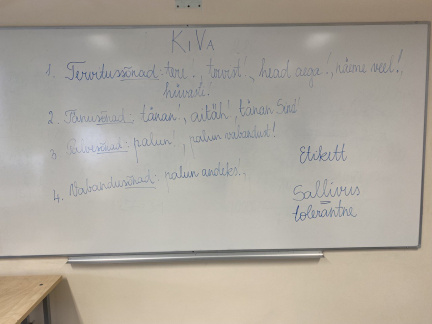 KiVa
1. Tervitussõnad: tere!, tervist!, head aega!, näeme veel!,
hüvasti!
2. Tänusõnad: tänan!, aitäh!, tänan Sind!
3. Palvesõnad: palun!, palun vabandust!
4. Vabandussõnad: palun andeks!,
Etikett
Sallivus
=
tolerantne